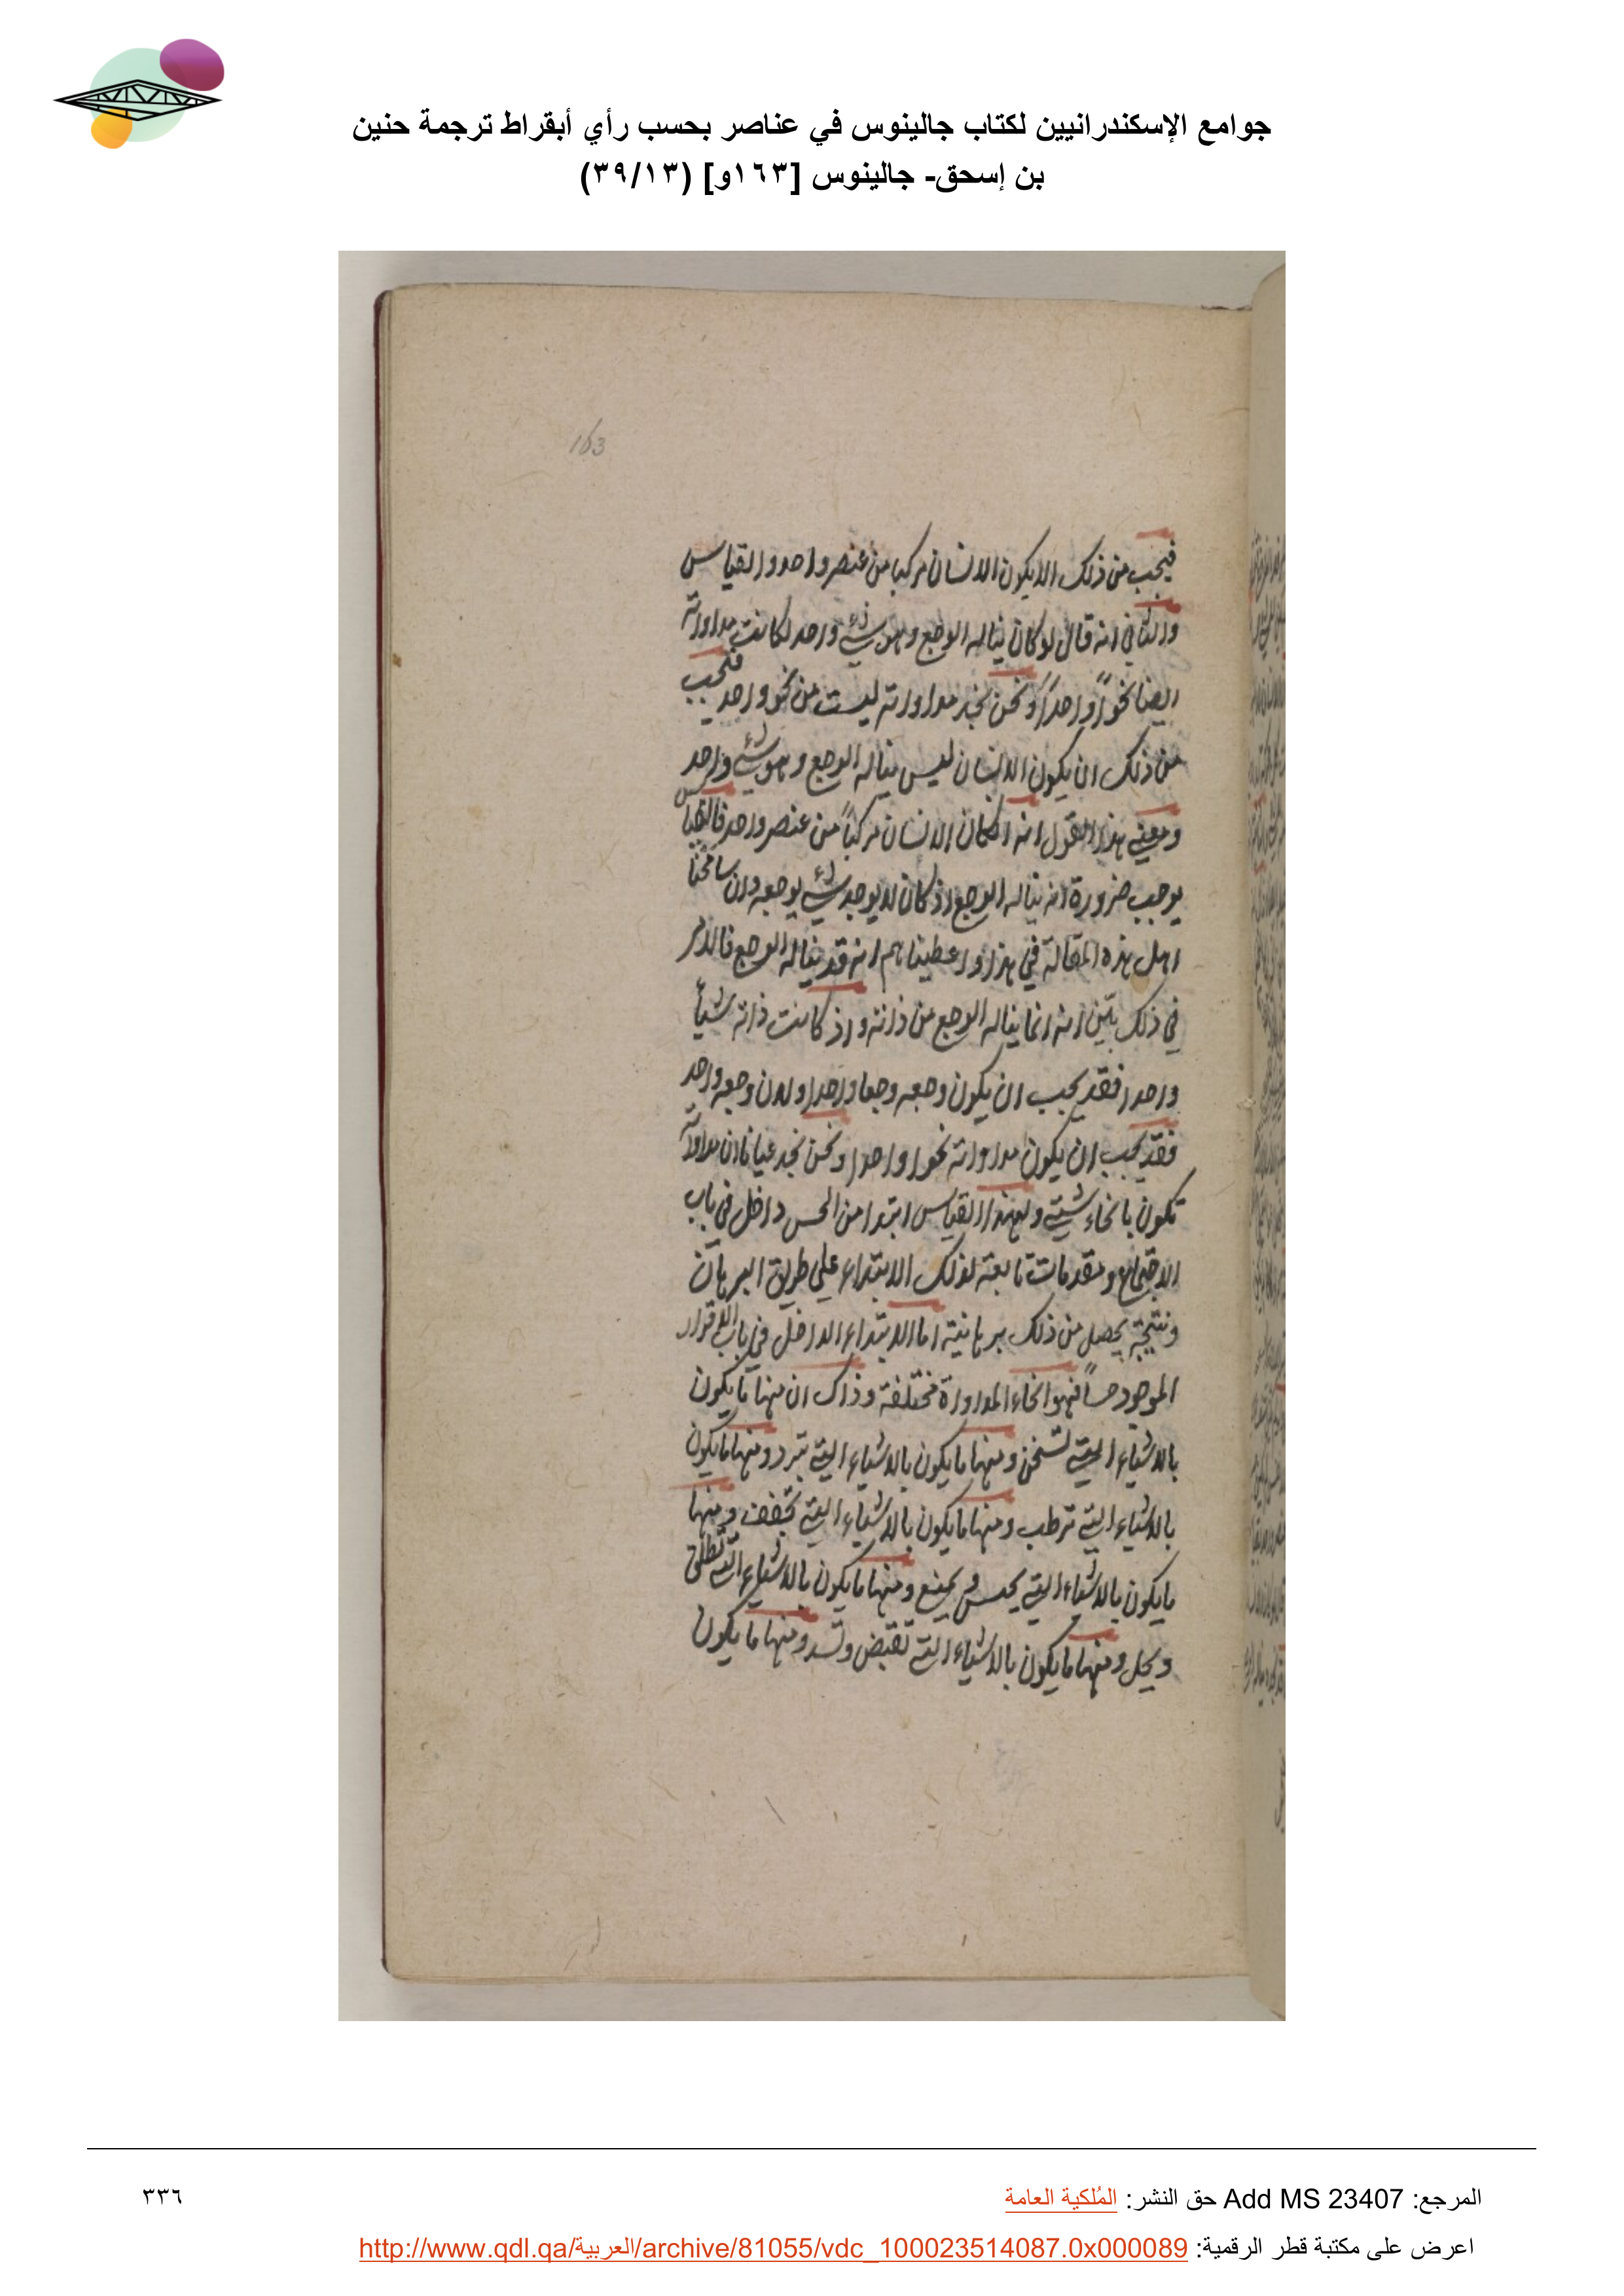 جوامع الإسكندرانيين لكتاب جالينوس في عناصر بحسب رأي أبقراط ترجمة حنين
بن إسحق- جالينوس [١٦٣و] (٣٩/١٣)
163
فيجب من ذلك الا يكون الانسان مركبا من عنصر واحد والقياس
والثاني انه قال لو كان يناله الوجع وهو شيء واحد لكانت مداواته
ايضا نحوًا واحدًا ونحن نجد مداواته ليست من نحو واحد فيجب
من ذلك ان يكون الانسان ليس يناله الوجع وهو شيء واحد
ومعني هذا القول انه ان كان الانسان مركباً من عنصر واحد فالقياس
يوجب ضرورة انه يناله الوجع اذ كان لا يوجد شيء يوجعه وان سامحنا
اهل هذه المقالة في هذا واعطيناهم انه قد يناله الوجع فالامر
في ذلك بيّن انه انما يناله الوجع من ذاته واذ كانت ذاته شيأً
واحدا فقد يجب ان يكون وجعه وجعا واحدا ولان وجعه واحد
فقد يجب ان يكون مداواته نحوا واحدا ونحن نجد عيانا ان مداواته
تكون بانحاء شتي ولهذا القياس ابتدا من الحس داخل في باب
ومقدمات تابعة لذلك الابتداء علي طريق البرهان
ونتيجة يحصل من ذلك برهانية اما الابتداء الداخل في باب الاقرار
الموجود حساً فهو انحاء المداواة مختلفة وذاك ان منها ما يكون
بالاشياء التي تسخن ومنها ما يكون بالاشياء التي تبرد ومنها ما يكون
بالاشياء التي ترطب ومنها ما يكون بالاشياء التي تجفف ومنها
ما يكون بالاشياء التي يحبس ويمنع ومنها ما يكون بالاشياء التي تطلق
ويحل ومنها ما يكون بالاشياء التي تقبض وتسد ومنها ما يكون
المرجع: Add MS 23407 حق النشر: المُلكية العامة
٣٣٦
اعرض على مكتبة قطر الرقمية: http://www.qdl.qa/العربية/archive/81055/vdc_100023514087.0x000089